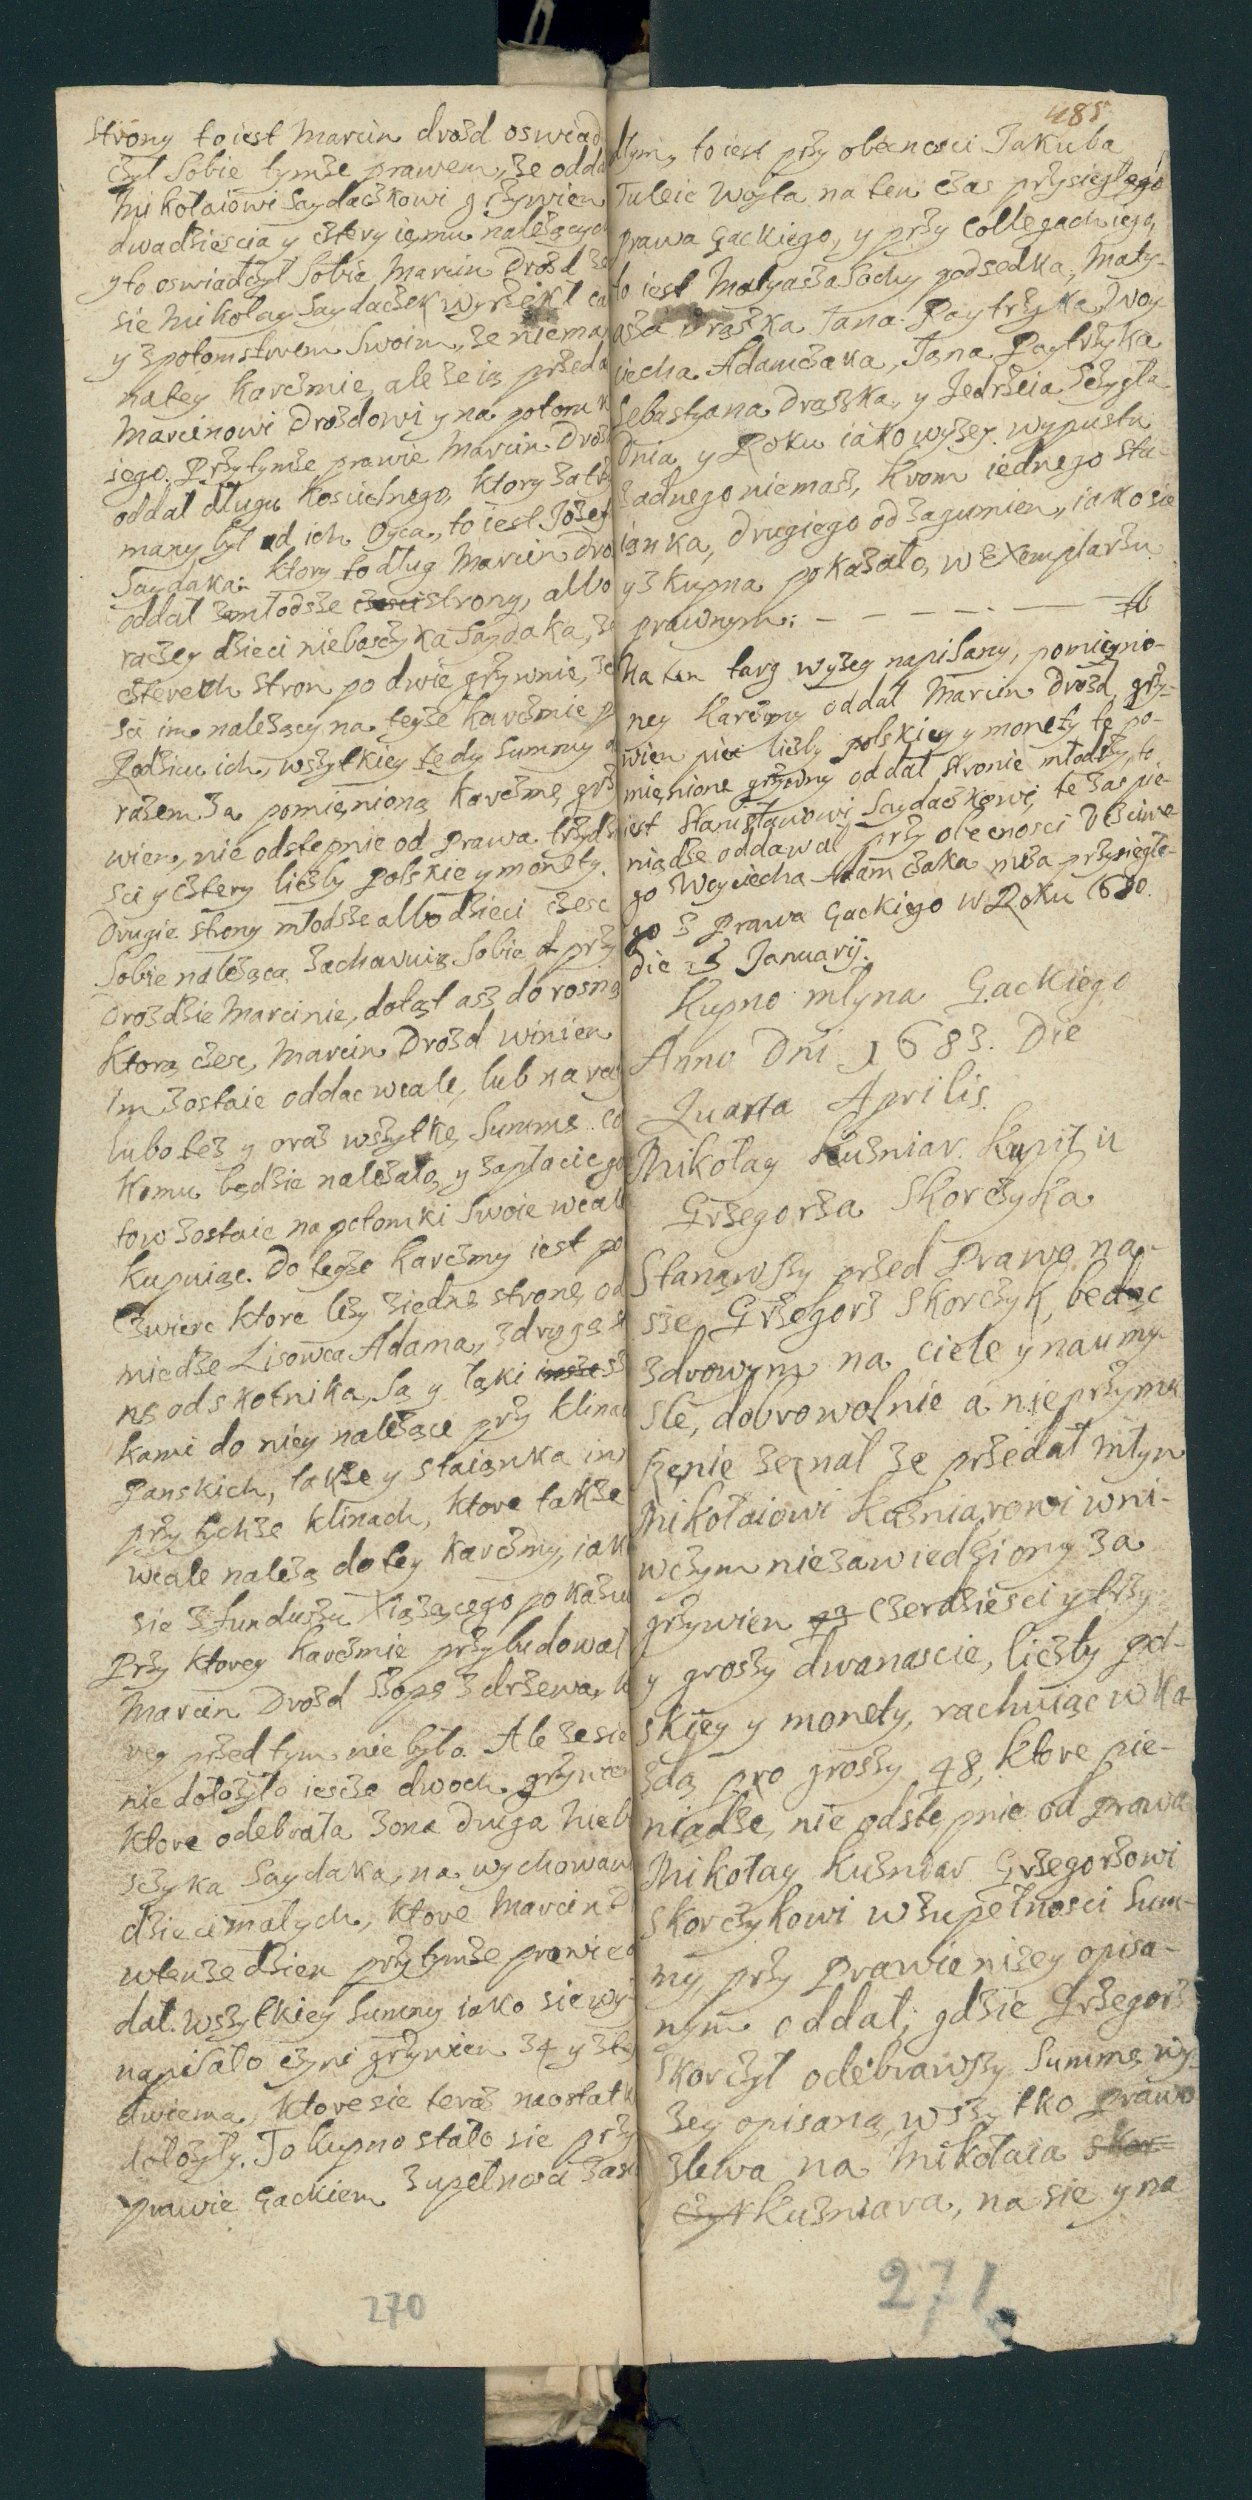 strony to iest Marcin drozd oswiad
czył Sobie tymze prawem, ze odda
Mikołaiowi Saydaczkowi grzywien
dwadziescia y cztery iemu nalezących
yto oswiadczył Sobie Marcin Drozd ze
sie Mikołay Saydaczek wyrzekł ca
y z potomstwem Swoim, ze niema
natey karczmie, ale ze ią przeda
Marcinowi Drozdowi y na potomk
iego. Przytymze prawie Marcin Drozd
oddał długu Koscielnego, ktory zatrz
many był od ich Oyca, to iest Jozef
Saydaka: ktory to dług Marcin Dro
oddał zmłodsze strony, albo
raczey dzieci nieboszczyka Saydaka, ze
czterech stron po dwie grzywnie, ze
sci im nalezący na teyze karczmie p
Rodzicu ich, wszytkiey tedy Summy
razem za pomięnioną karczmę grz
wien, nie odstepnie od Prawa trzydzi
sci y cztery liczby Polskiey monety.
Drugie strony młodsze albo dzieci czesc
Sobie nalezącą zachowuią Sobie przy
Drozdzie Marcinie, dotąt asz do rosną
Ktorą czesc, Marcin Drozd winien
Im zostaie oddac wcale, lub na ra
lubo tesz y oraz wszytkę Summę co
Komu będzie nalezało, y zapłacic go
tow zostaie na potomki Swoie wcale
Kupuiąc. Do teyze Karczmy iest po
cwierc ktore lezy ziedną stronę od
miedze Lisowca Adama, z drugą st
nę od skotnika, Są y łąki
kami do niey nalezące przy klinac
Panskich, takze y staianka in
przy tychze klinach, ktore takze
wcale nalezą do tey karczmy, iak
sie z funduszu Xiązęcego pokazu
Przy ktorey Karczmie przybudował
Marcin Drozd szopę z drzewa, k
rey przed tym nie było. Ale ze sie
nie dołozyło iescze dwoch grzywien
Ktore odebrała zona druga niebo
szczyka Saydaka, na wychowan
dzieci małych, ktore Marcin D
wtenze dzien przytymze prawie o
dał. wszytkiey Summy iako sie wyz
napisało czyni grzywien 34 y zty
dwiema, ktore sie teraz naostatk
dołozyły. To Kupno stało sie przy
prawie Gackiem zupełnosci zas
270
485
dłym, to iest przy obecnosci Jakuba
Tuleie Woyta na ten czas przysięgłego
Prawa Gackiego, y przy Collegach iego,
to iest Matyasza Sochy podsedka, Maty-
asza Draszka Jana Paytrzyka, Woy
ciecha Adamczaka, Jana Paytrzyka
Sebastyana Draszka, y Jedrzeia Szczygła
Dnia y Roku iako wyzey. wypustu
zadnego niemasz, krom iednego sta-
ianka, drugiego od zagumien, iako sie
y z Kupna pokazało, w Exemplarzu
prawnym: — — — —
Na ten targ wyzey napisany, pomięnio-
ney karczmy oddał Marcin Drozd grzy-
wien pięc liczby polskiey y monety te po-
mięnione grzywny oddał stronie młodszy, to
iest Stanisławowi Saydaczkowi, te zas pie-
niądze oddawał przy obecnosci Uczciwe-
go Woyciecha Adamczaka męza przysięgłe-
go z Prawa Gackiego w Roku 1680.
Die 23 Januarij.
Kupno młyna Gackiego
Anno Dni 1683. Die
Quarta Aprilis.
Mikołay Kuzniar. Kupił u
Grzegorza Skorczyka
Stanąwszy przed Prawo na-
sze, Grzegorz Skorczyk, bedąc
zdrowym na ciele y na umy-
sle, dobrowolnie a nieprzymu
szenie zeznał ze przedał młyn
Mikołaiowi Kuzniarowi wni-
wczym niezawiedziony za
grzywien czterdziesci y trzy
y groszy dwanascie, liczby pol-
skiey y monety, rachuiąc w ka-
zdą pro groszy 48, ktore pie-
niądze, nie odstępnie od Prawa
Mikołay Kuzniar Grzegorzowi
Skorczykowi w zupełnosci Sum-
my, przy Prawie nizey opisa-
nym oddał; gdzie Grzegorz
Skorczyk odebrawszy Summę wy-
zey opisaną, wszytko prawo
zlewa na Mikołaia skor-
czyk Kuzniara, na sie y na
271